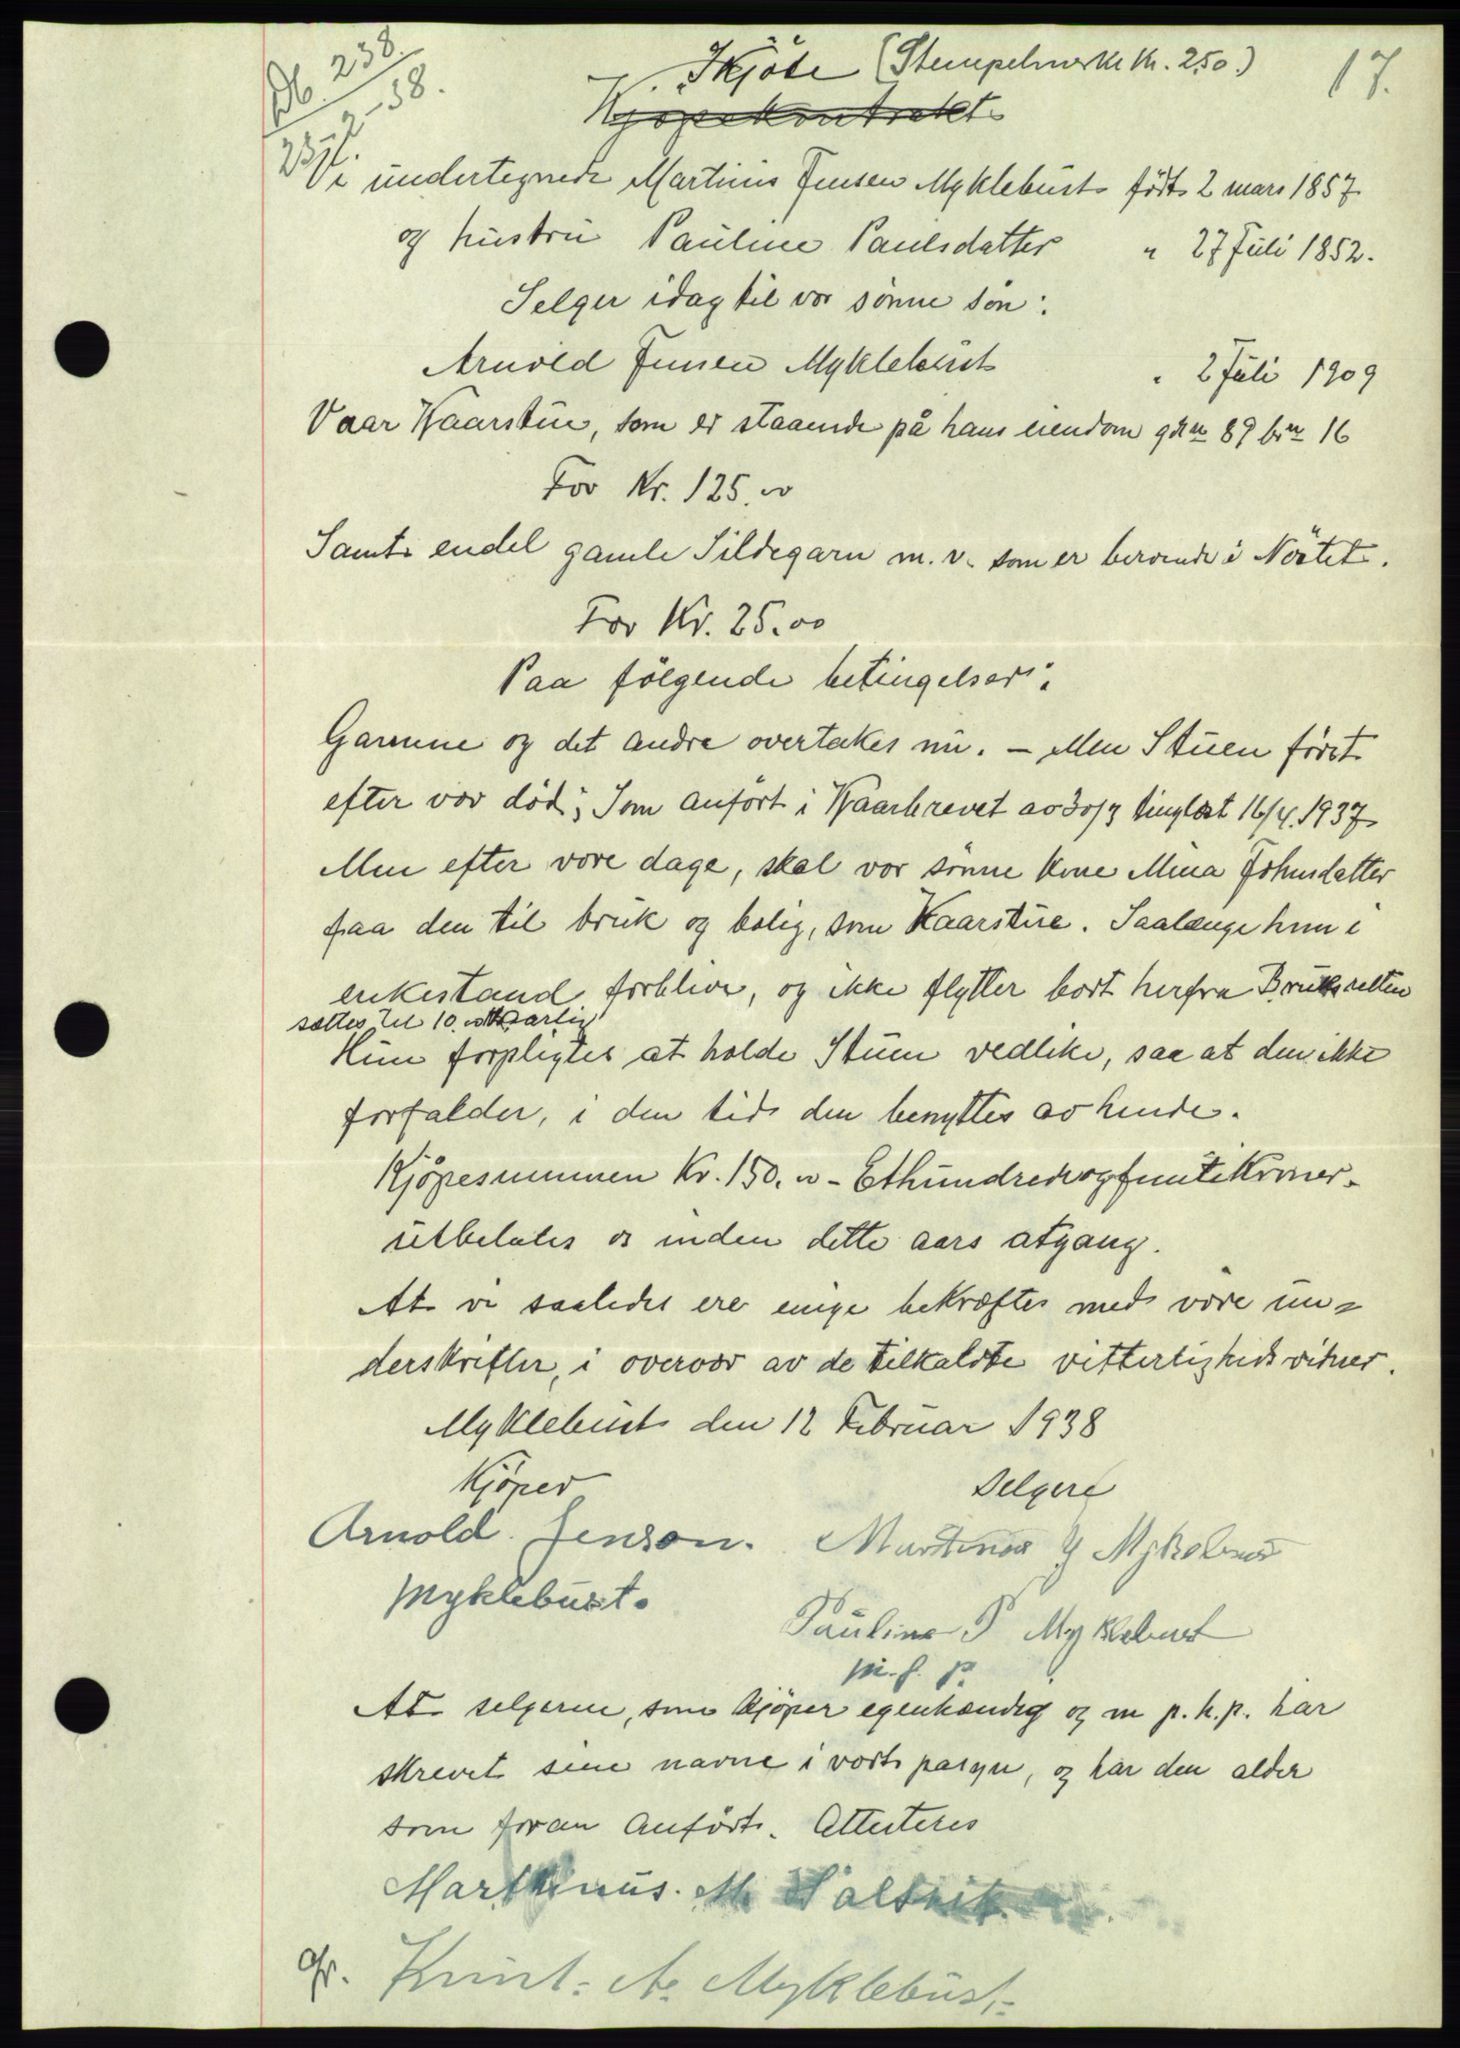 Db. 238
23/2-38.
17.
Skjøte (Stempelmerke kr. 2,50.)
Kjøpekontrakt
Vi undertegnede Martinus Jensen Myklebust født 2 mars 1857
og hustru Pauline Paulsdatter " 27 Juli 1852.
Selger idag til vor sønne søn:
Arnold Jensen Myklebust " 2 Juli 1909
Vaar Kaarstue, som er staaende på hans eiendom gdnr 89 brnr 16
For Kr. 125.00
Samt endel gamle Sildegarn m.v. som er beroende i Nöstet.
For Kr. 25.00
Paa følgende betingelser:
Garnene og det andre overtakes nu. – Men Stuen först
efter vor död; Som anfört i Kaarbrevet av 30/3 tinglæst 16/4.1937
Men efter vore dage, skal vor sønne kone Mina Johnsdatter
faa den til bruk og bolig, som Kaarstue. Saalænge hun i
enkestand forblive, og ikke flytter bort herfra Bruksretten
sættes til 10.00 Kr aarlig
Hun forpligtes at holde Stuen vedlike, saa at den ikke
forfalder, i den tid den benyttes av hende.
Kjöpesummen Kr. 150.00 – EthundredeogfemtiKroner.
utbetales os inden dette aars utgang.
At vi saaledes ere enige bekræftes med vore un=
derskrifter, i overvær av de tilkaldte vitterlighedsvitner.
Myklebust den 12 Februar 1938
Kjöper
Selgere
Arnold Jenson.
Myklebust.
Martinus J Myklebust
Pauline P Myklebust
m. f. p.
At selgerne, som Kjöper egenhændig og m p.h.p. har
skrevet sine navne i vort paasyn, og har den alder
som foran anfört. Attesteres
Marthinus. M Saltvik
Gr. Knut. A. Myklebust.